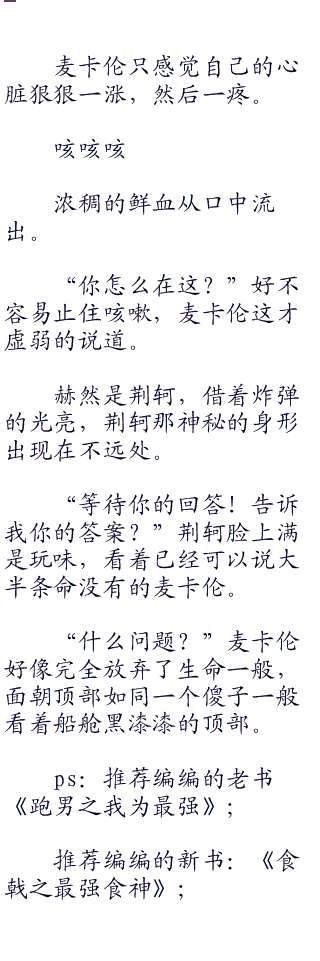 麦卡伦只感觉自己的心
脏狠狠一涨，然后一疼。
咳咳咳
浓稠的鲜血从口中流
出。
“你怎么在这？”好不
容易止住咳嗽，麦卡伦这才
虚弱的说道。
赫然是荆轲，借着炸弹
的光亮，荆轲那神秘的身形
出现在不远处。
“等待你的回答！告诉
我你的答案？”荆轲脸上满
是玩味，看着已经可以说大
半条命没有的麦卡伦。
“什么问题？”麦卡伦
好像完全放弃了生命一般，
面朝顶部如同一个傻子一般
看着船舱黑漆漆的顶部。
ps：推荐编编的老书
《跑男之我为最强》；
推荐编编的新书：《食
戟之最强食神》；